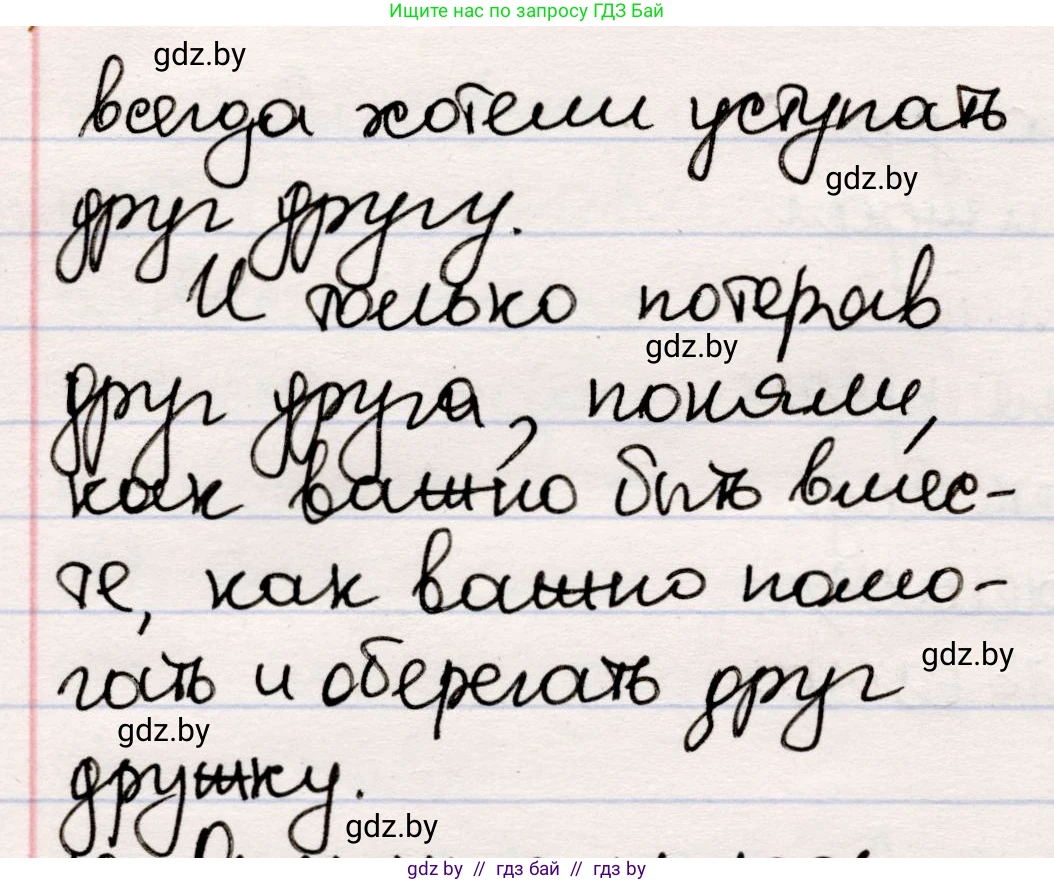 Ищите нас по запросу ГДЗ Бай
gdz.by
всегда хотели уступать
gdz.by
друг другу.
И только потеряв
gdz.by
друг друга, поняли,
как важно быть вмес-
те, как важно помо-
гать и оберегать друг
gdz.by
gdz.by
дружку.
gdz.by
gdz by // гдз бай // gdz by